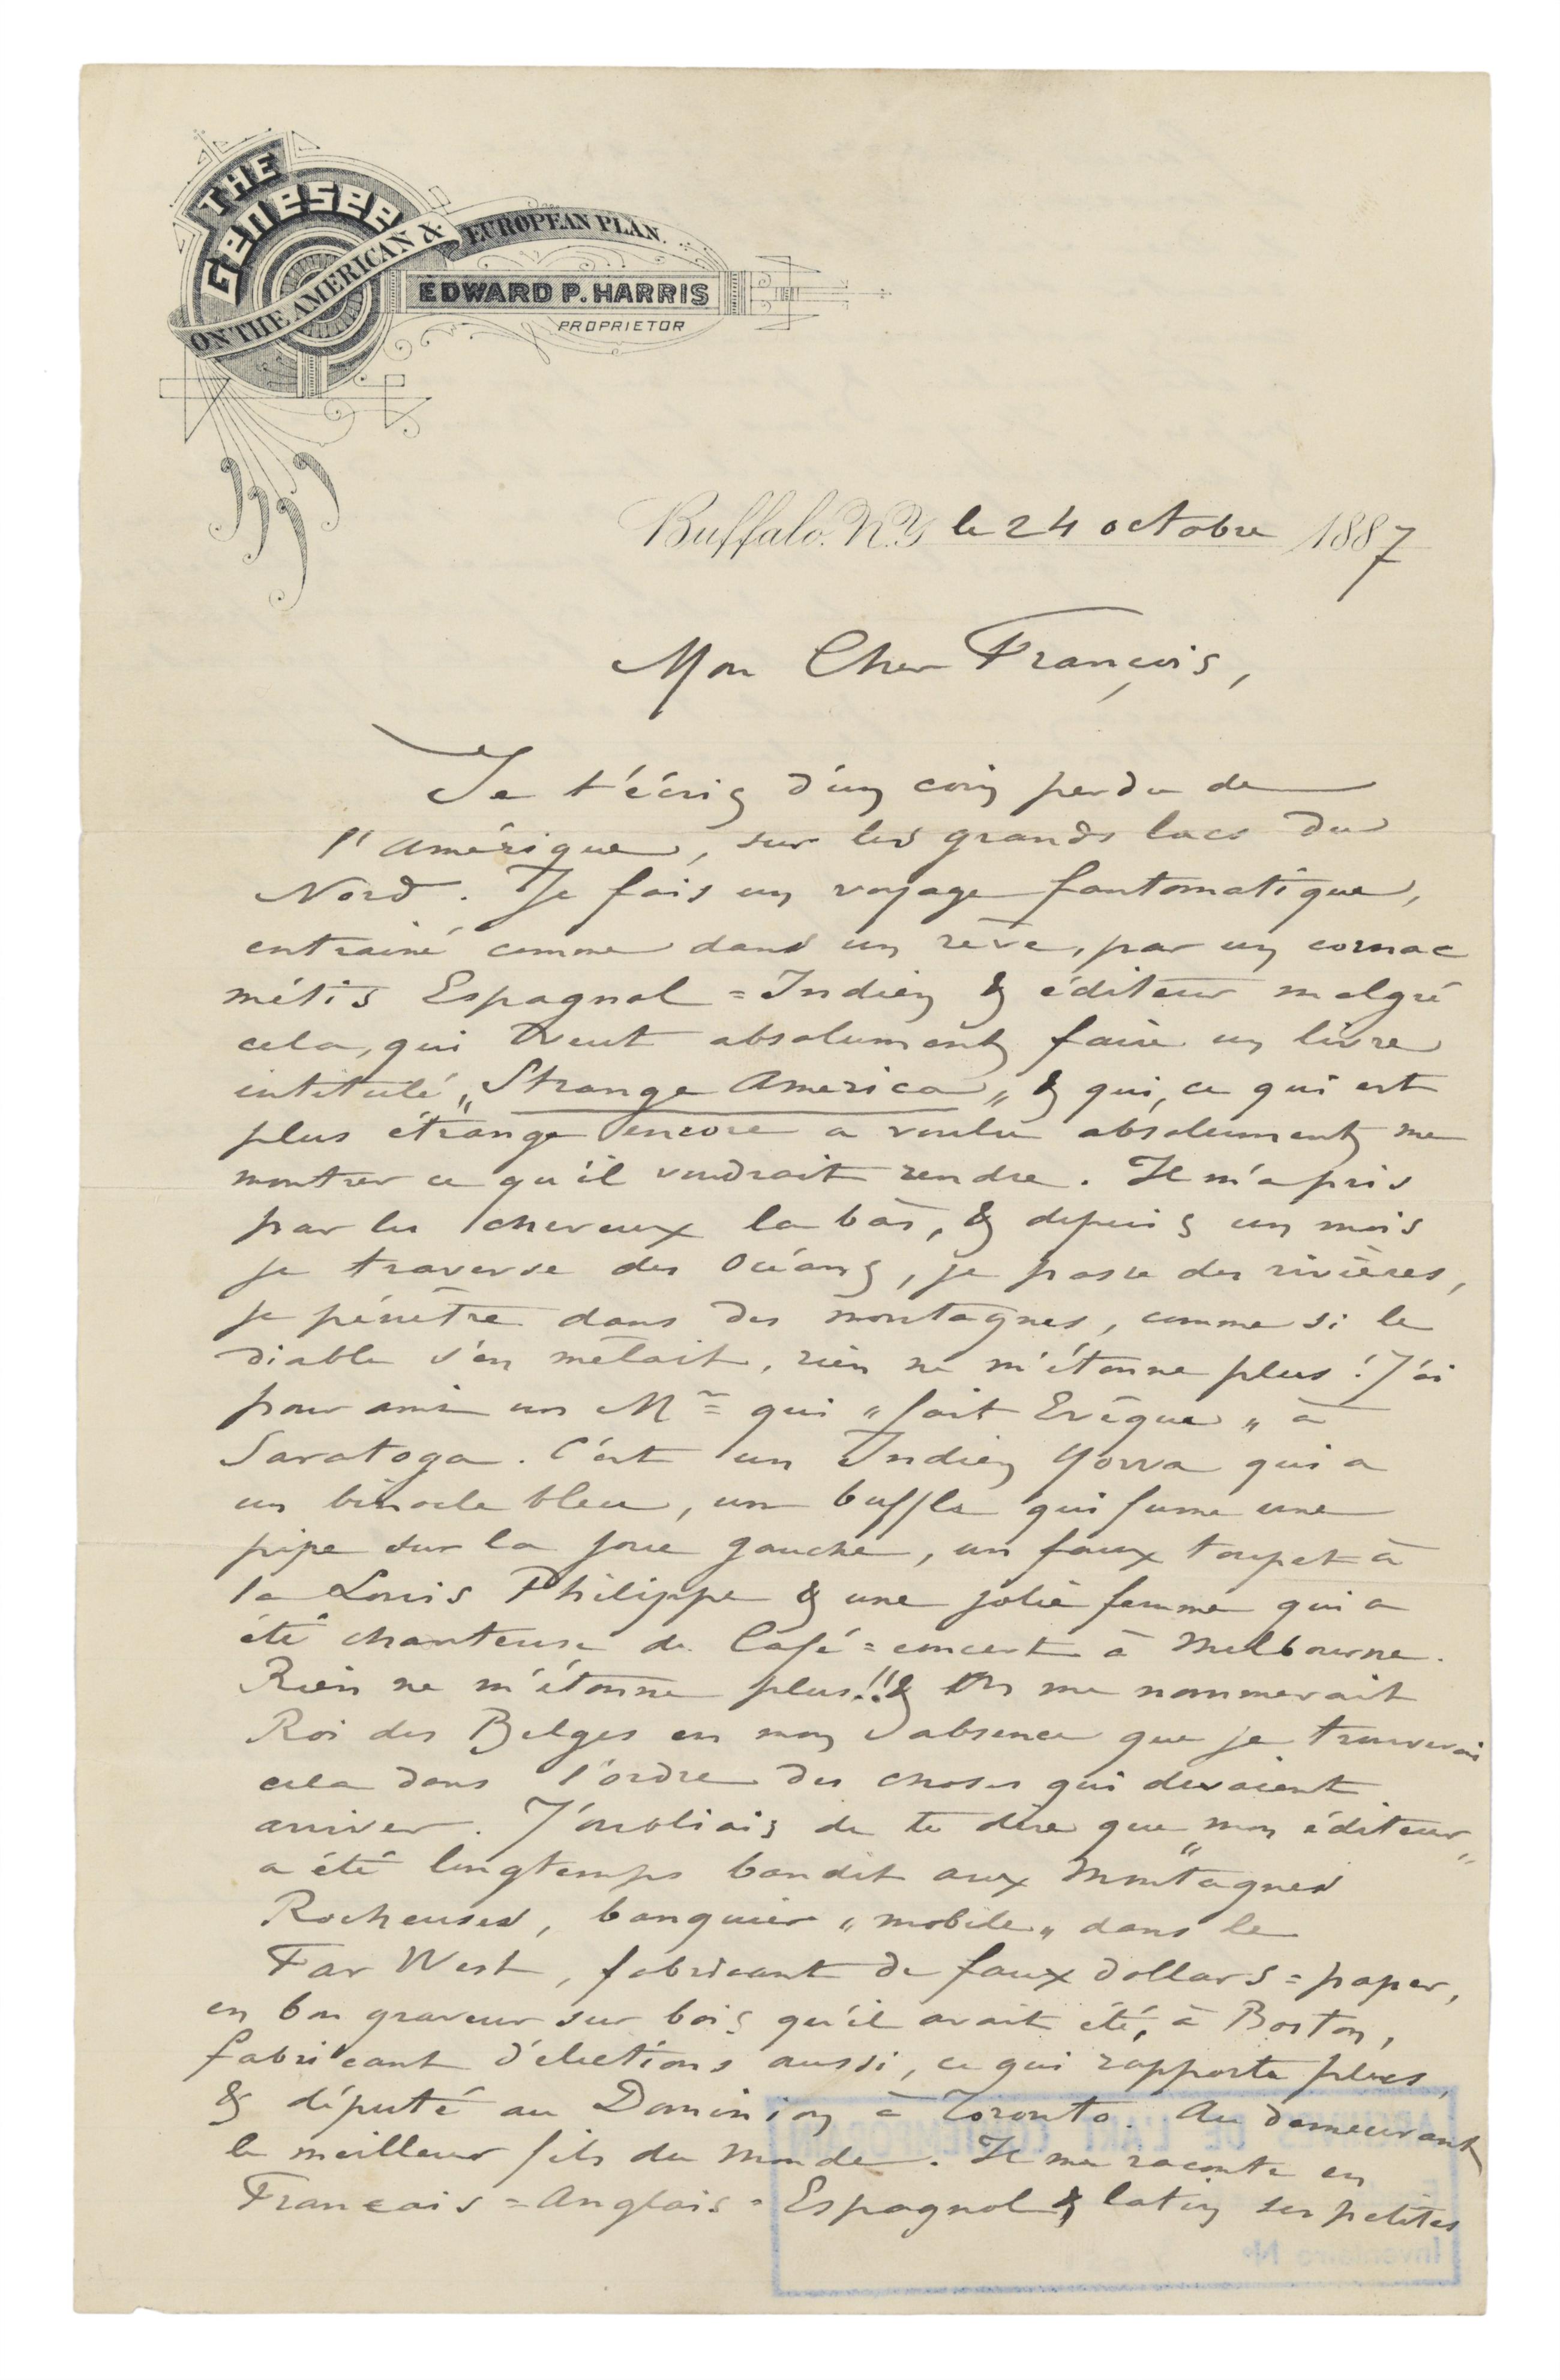 THE
GENESEE
ON THE AMERICAN & EUROPEAN PLAN.
EDWARD P. HARRIS
PROPRIETOR
Buffalo. N.Y. le 24 octobre 1887
Mon Cher François,
Je t'écris d'un coin perdu de
l'Amérique, sur les grands lacs du
Nord. Je fais un voyage fantomatique,
entrainé comme dans un rêve, par un cornac
métis Espagnol = Indien & éditeur malgré
cela, qui veut absolument faire un livre
intitulé „Strange America„ & qui, ce qui est
plus étrange encore a voulu absolument me
montrer ce qu'il voudrait rendre. Il m'a pris
par les cheveux la bàs, & depuis un mois
je traverse des Océans, je passe des rivières,
je pénètre dans des montagnes, comme si le
diable s'en mêlait, rien ne m'étonne plus! J'ai
pour ami un Mr qui „fait Evêque„ à
Saratoga. C'est un Indien Yowa qui a
un binocle bleu, un buffle qui fume une
pipe sur la joue gauche, un faux toupet à
la Louis Philippe & une jolie femme qui a
été chanteuse de Café=concert à Melbourne.
Rien ne m'étonne plus!! & On me nommerait
Roi des Belges en mon absence que je trouverais
cela dans l'ordre des choses qui devaient
arriver. J'oubliais de te dire que „mon éditeur„
a été longtemps bandit aux Montagnes
Rocheuses, banquier „mobile„ dans le
Far West, fabricant de faux dollars=paper,
en bon graveur sur bois qu'il avait été, à Boston,
fabricant d'élections aussi, ce qui rapporte plus,
& député au Dominion à Toronto. Au demeurant
le meilleur fils du monde. Il me raconte en
Français = Anglais = Espagnol & latin ses petites
ARCHIVES DE L'ART CONTEMPORAIN
Inventaire No